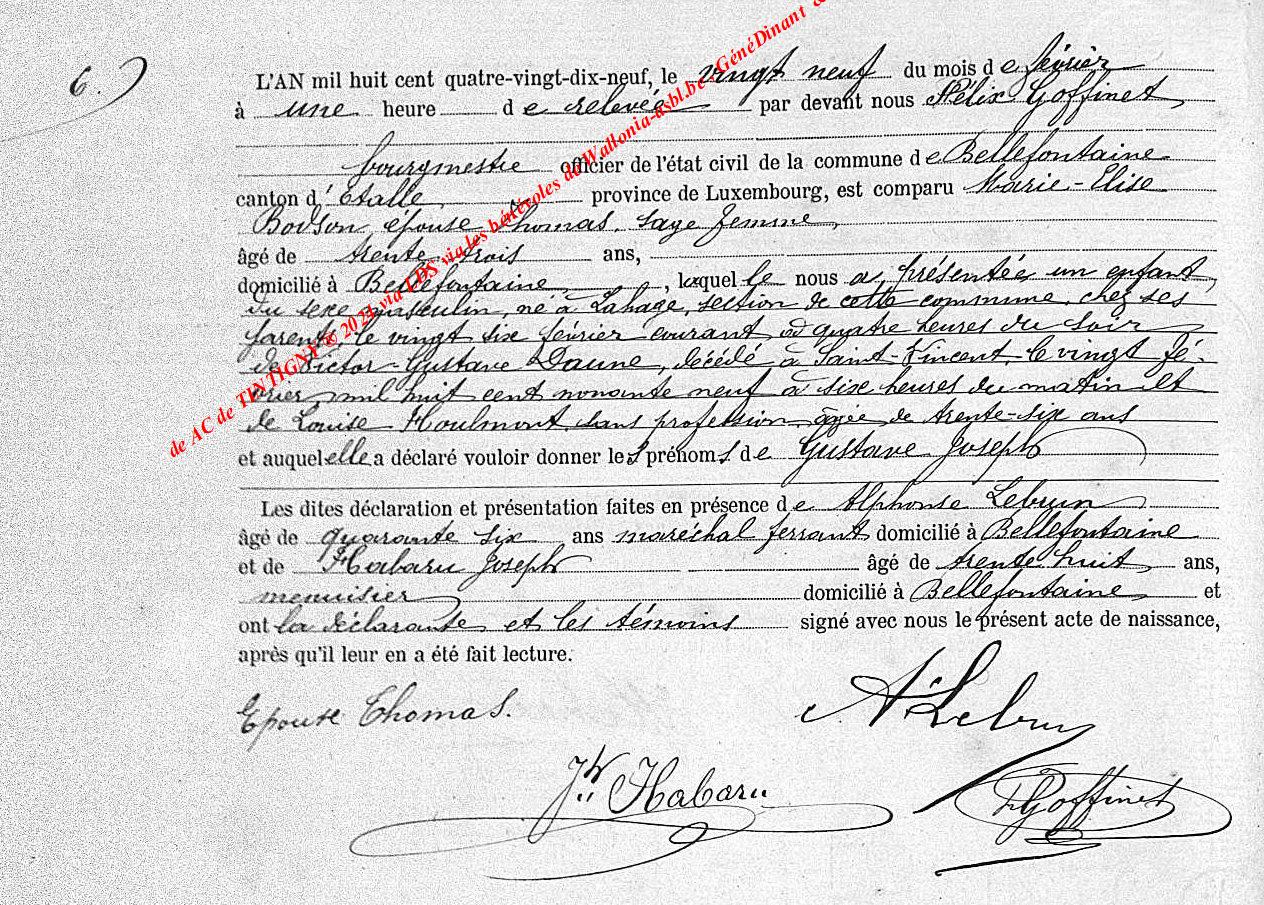 6.)
L'AN mil huit cent quatre-vingt-dix-neuf, le vingt neuf du mois de février
à une heure de relevée par devant nous Félix Goffinet
bourgmestre officier de l'état civil de la commune de Bellefontaine
canton d'Etalle province de Luxembourg, est comparu Marie-Elise
Bodson, épouse Thomas, sage femme,
âgé de trente trois ans,
domicilié à Bellefontaine, laquelle nous a présentée un enfant,
du sexe masculin, né à Lahage, section de cette commune, chez ses
parents, le vingt six février courant, à quatre heures du soir
de Victor-Gustave Daune, décédé à Saint-Vincent, le vingt fé-
vrier mil huit cent nonante neuf à six heures du matin et
de Louise Houlmont sans profession, âgée de trente-six ans
et auquel elle a déclaré vouloir donner les prénoms de Gustave Joseph
Les dites déclaration et présentation faites en présence de Alphonse Lebrun
âgé de quarante six ans maréchal ferrant domicilié à Bellefontaine
et de Habaru Joseph âgé de trente huit ans,
menuisier domicilié à Bellefontaine et
ont la déclarante et les témoins signé avec nous le présent acte de naissance,
après qu'il leur en a été fait lecture.
Epouse Thomas.
A. Lebrun
Jh Habaru
F Goffinet
de AC de TINTIGNY © 2024 via LDS via les bénévoles de Wallonia-asbl.be - GénéDinant &